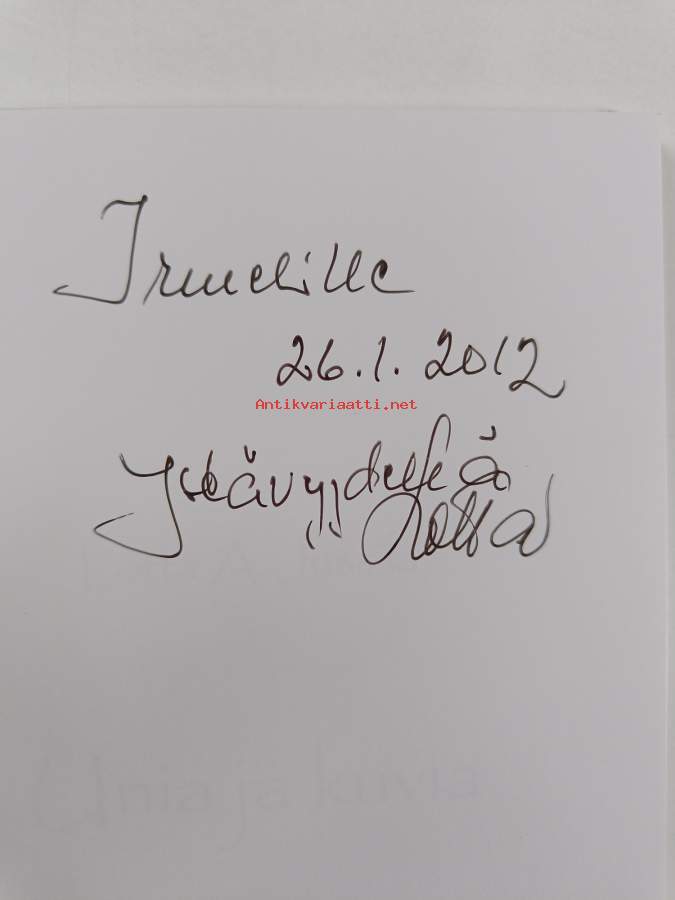 Irmelille
26.1.2012
Antikvariaatti.net
Ystävyydellä
Lotta